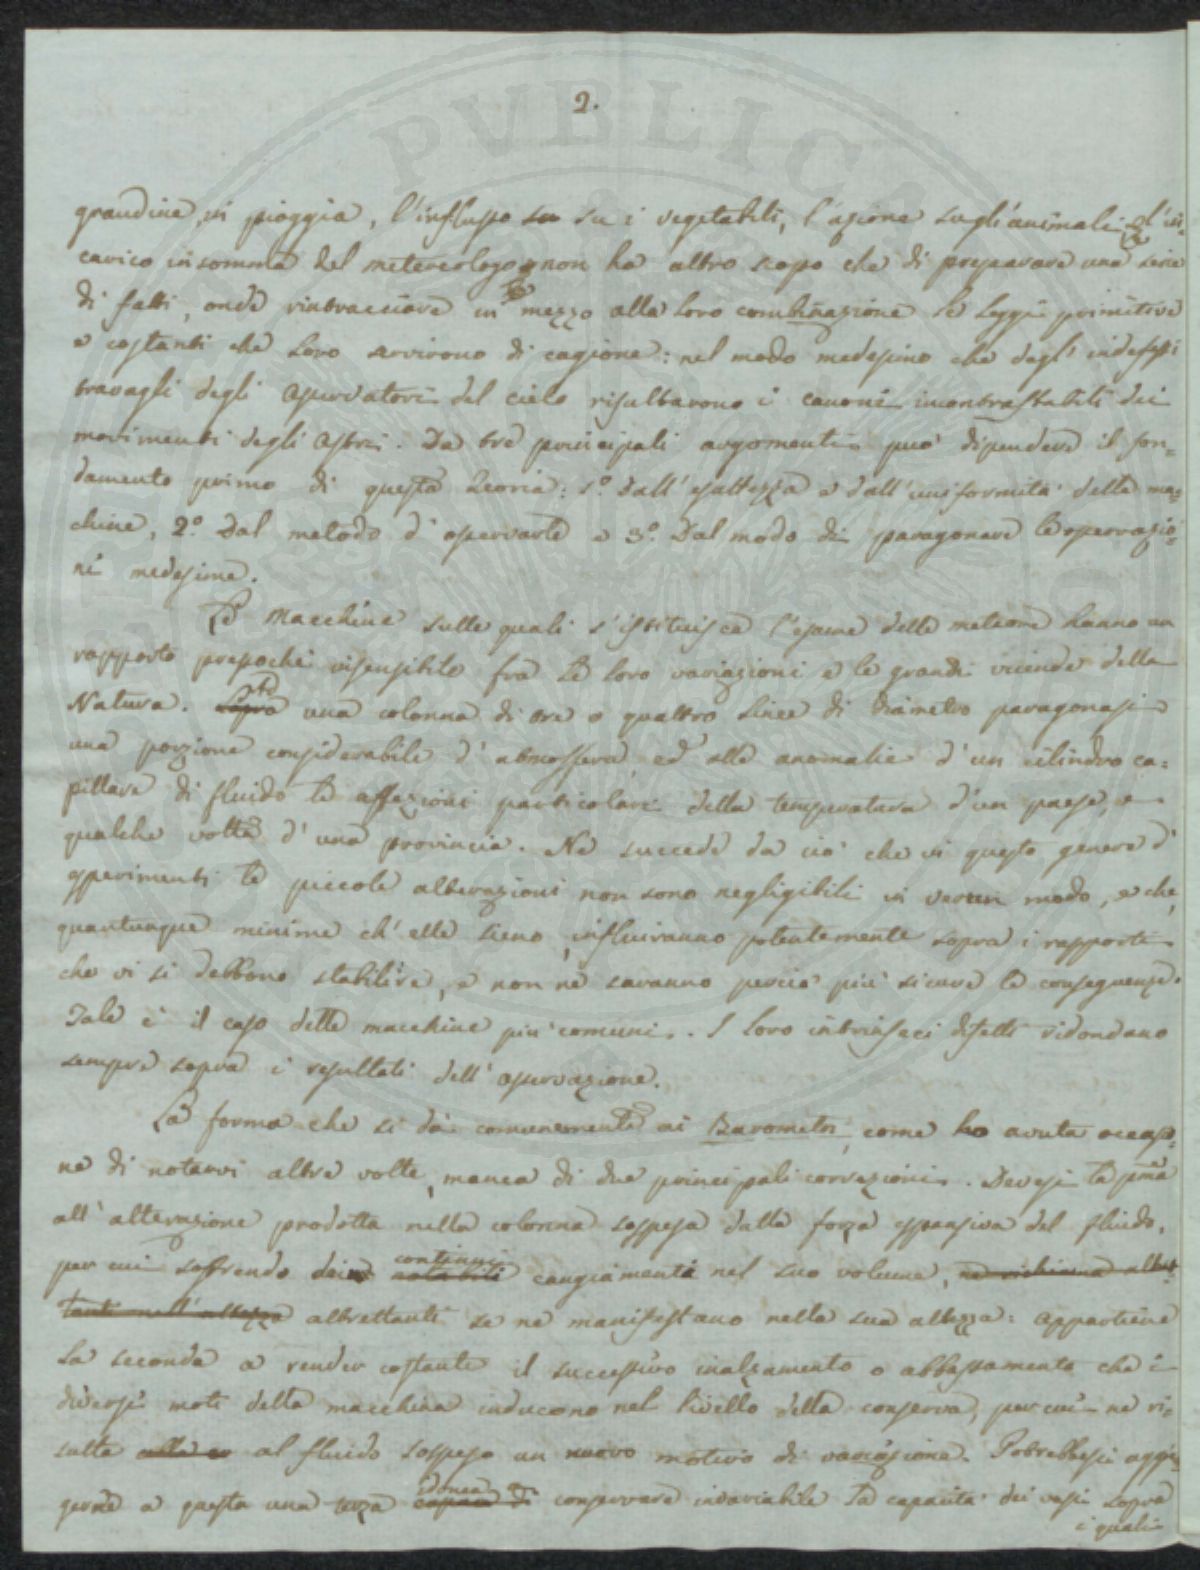 2.
grandine, in pioggia, l'influsso su su i vegetabili, l'azione sugli animali. L'in=
carico in somma del metereologo non ha altro scopo che di preparare una serie
di fatti, onde rintracciare in mezzo alla loro combinazione le leggi primitive
e costanti che loro servirono di cagione: nel modo medesimo che dagl' indefessi
travagli degli Osservatori del cielo risultarono i canoni incontrastabili dei
movimenti degli Astri. Da tre principali argomenti può dipendere il fon=
damento primo di questa Teoria: 1.º Dall'esattezza e dall'uniformità delle ma=
chine, 2.º Dal metodo d'osservarle e 3.º Dal modo di paragonare le osservazio=
ni medesime.
Le Macchine sulle quali s'istituisce l'esame delle meteore hanno un
rapporto pressochè insensibile fra le loro variazioni e le grandi vicende della
Natura. Sopra ad una colonna di tre o quattro linee di diametro paragonasi
una porzione considerabile d'atmosfera, ed alle anomalie d'un cilindro ca=
pillare di fluido le affezioni particolari della temperatura d'un paese, e
qualche volta d'una provincia. Ne succede da ciò che in questo genere d'
esperimenti le piccole alterazioni non sono negligibili in verun modo, e che,
quantunque minime ch'elle sieno, influiranno potentemente sopra i rapporti
che vi si debbono stabilire, e non ne saranno perciò più sicure le conseguenze.
Tale è il caso delle macchine più comuni. I loro intrinseci difetti ridondano
sempre sopra i resultati dell'osservazione.
La forma che si dà comunemente ai Barometri, come ho avuta occasio=
ne di notarvi altre volte, manca di due principali correzioni. Devesi la pma
all'alterazione prodotta nella colonna sospesa dalla forza espansiva del fluido,
per cui soffrendo dei continui notabili cangiamenti nel suo volume, ne richiama altret=
tanti nell'altezza altrettanti se ne manifestano nella sua altezza: appartiene
la seconda a render costante il successivo inalzamento o abbassamento che i
diversi moti della macchina inducono nel livello della conserva, per cui ne ri=
sulta al fluido sospeso un nuovo motivo di variazione. Potrebbesi aggiu=
gnere a questa una terza idonea capace a conservare invariabile la capacità dei vasi sopra
i quali